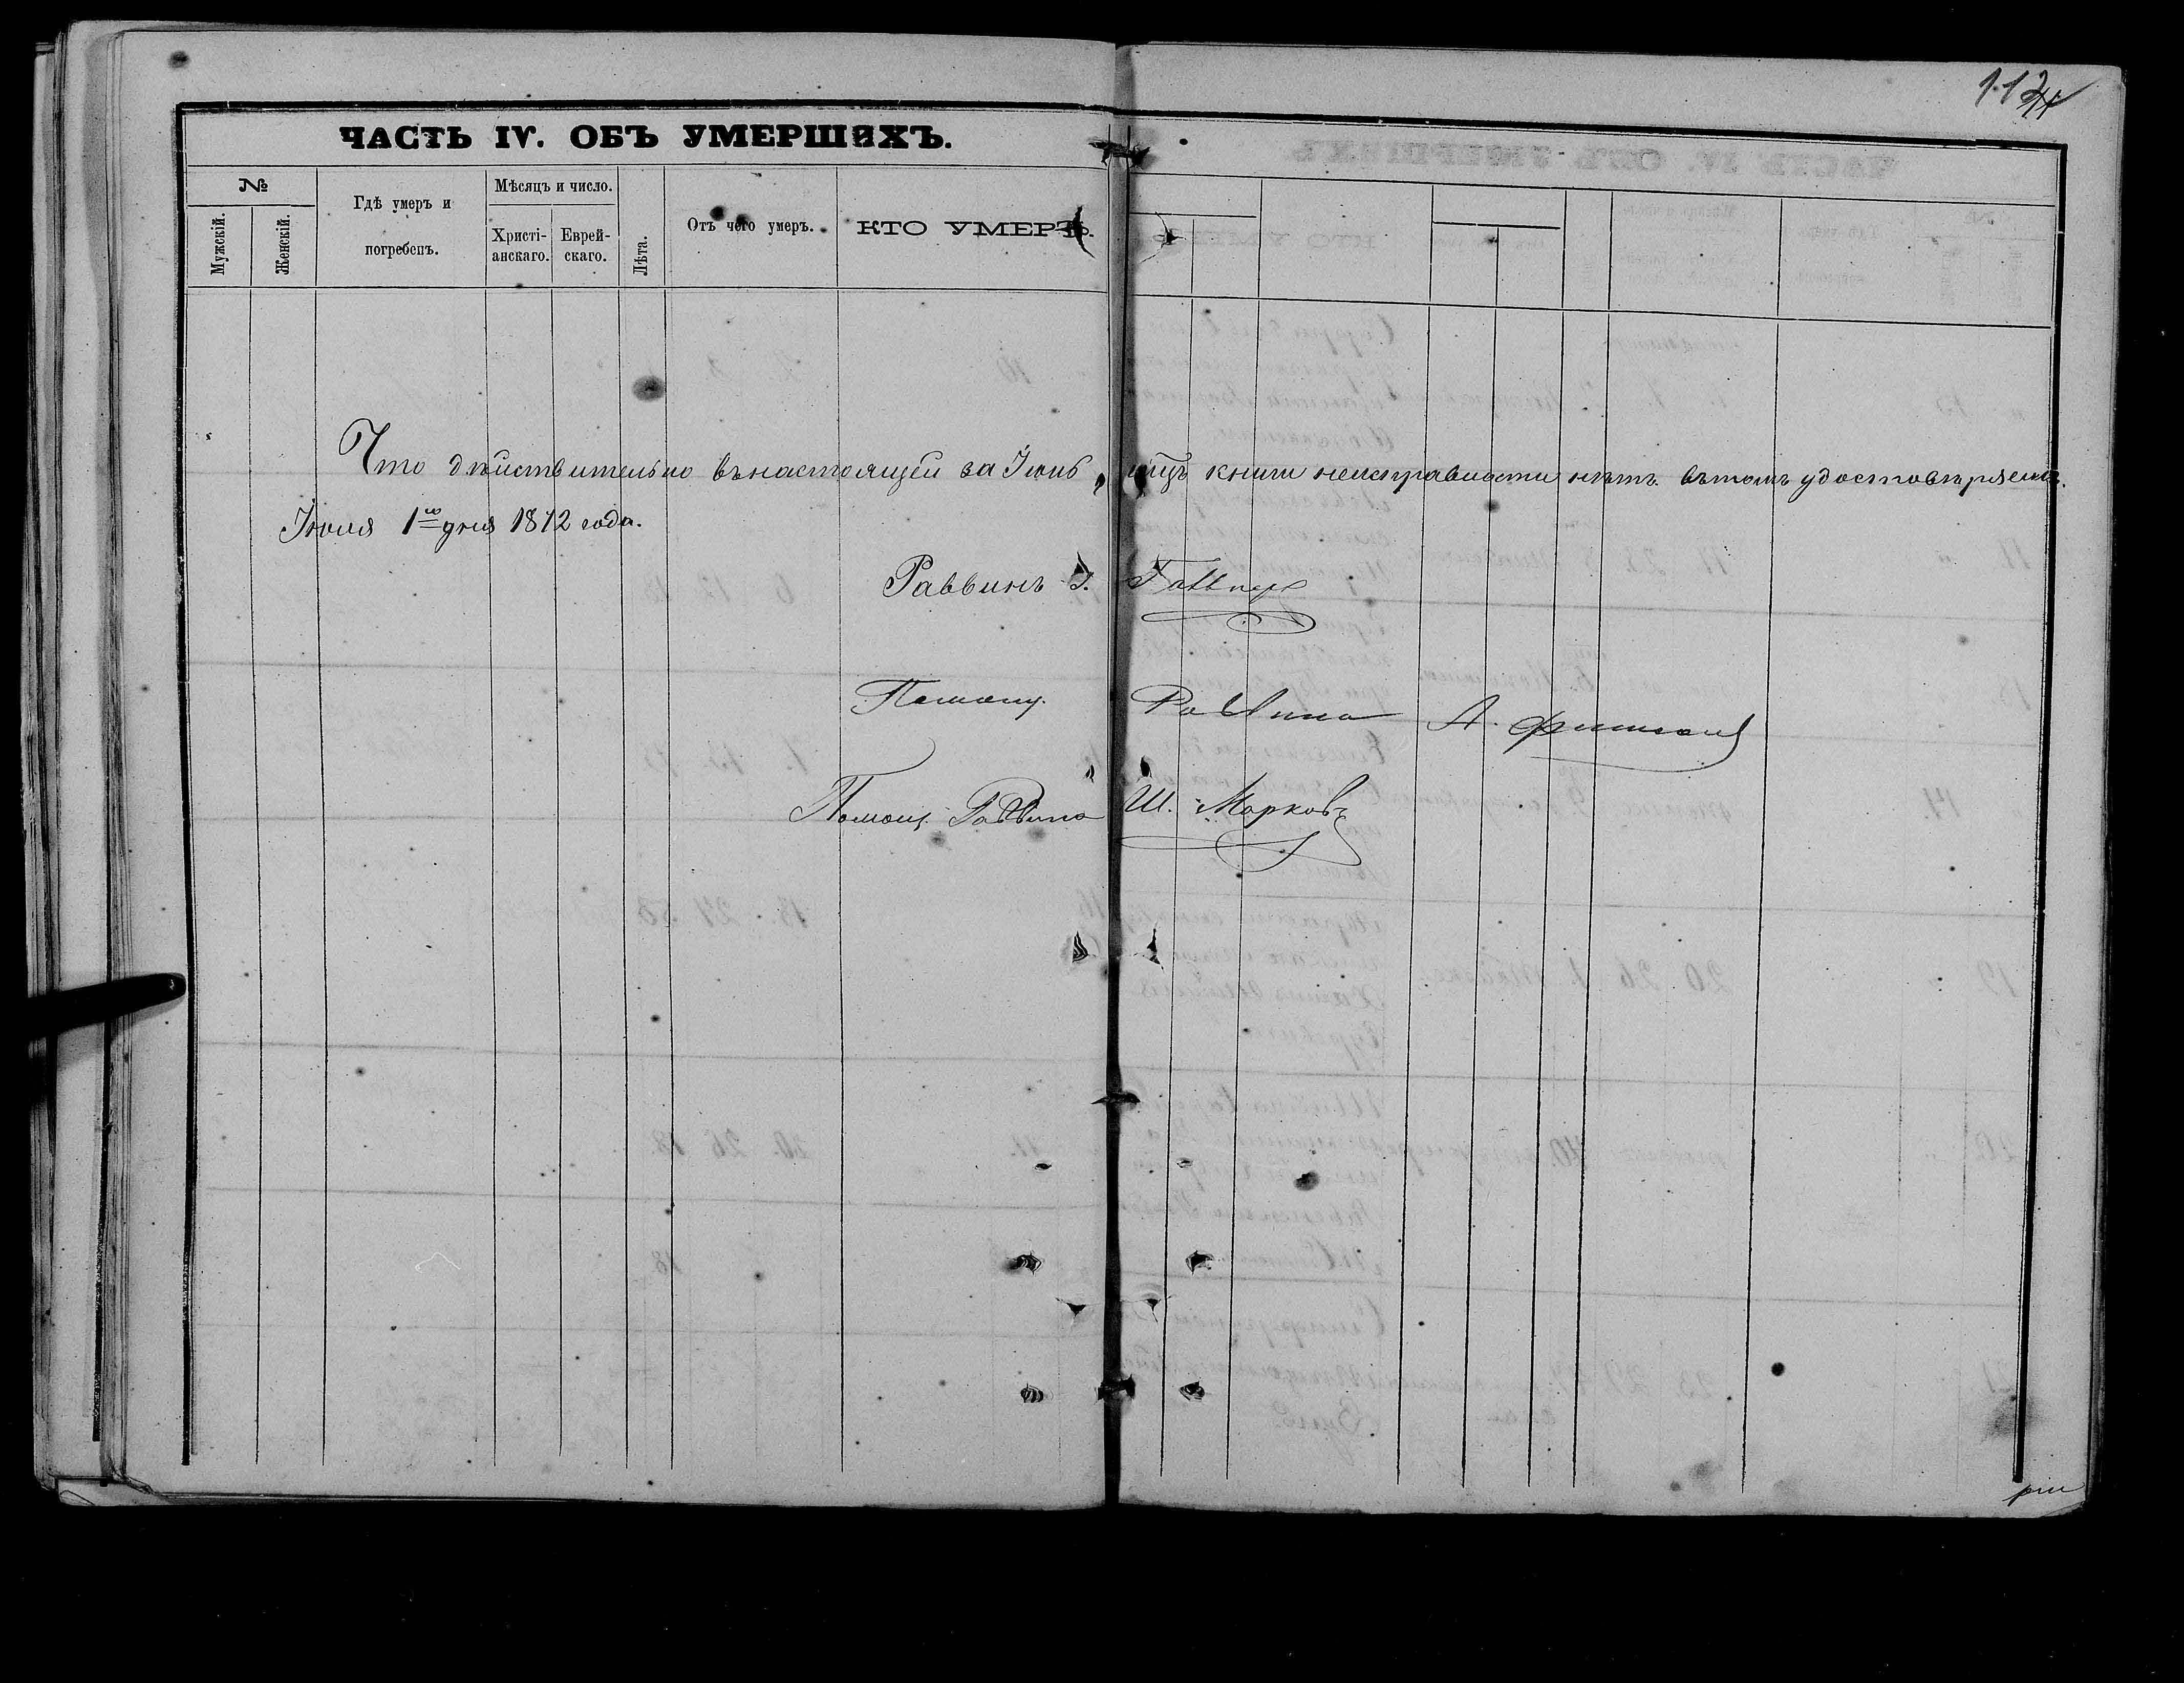 112
ЧАСТЬ IV. ОБЪ УМЕРШИХЪ.
№
Мужскій.
Женскій.
Гдѣ умеръ и
погребенъ.
Мѣсяцъ и число.
Христі-
анскаго.
Еврей-
скаго.
Лѣта.
Отъ чего умеръ.
КТО УМЕРЪ.
Что дѣйствительно въ настоящей за Іюнь мцъ книги неисправности нѣтъ въ томъ удостовѣряемъ.
Іюля 1го дня 1872 года.
Раввинъ
Помощ. Раввина А.
Помощ. Раввина Ш. Марковъ